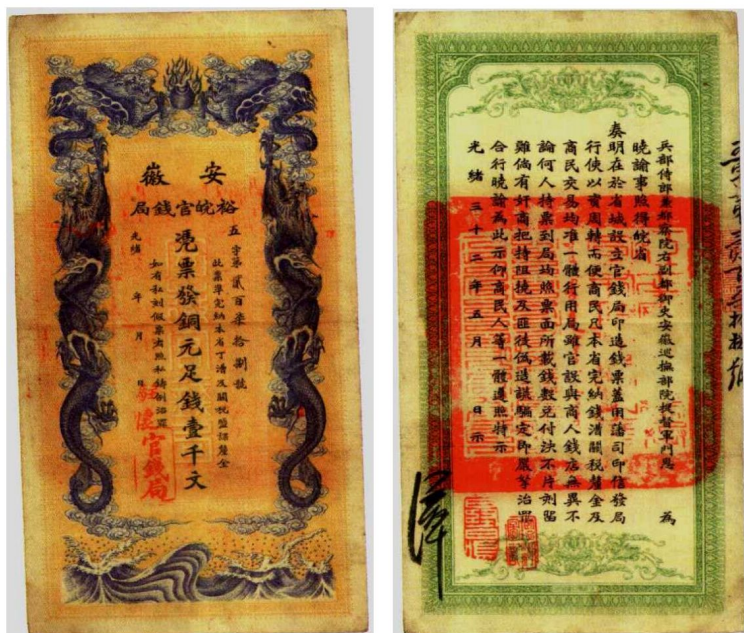 安徽
裕皖官錢局
五字第貳百柒拾捌號
此票準完納本省丁漕及關稅鹽課釐金
憑票發銅元足錢壹千文
如有私刻假票者照私鑄例治罪
光緒 年 月 日
官錢局
兵部侍郎兼都察院右副都御史安徽巡撫部院提督軍門恩 為
曉諭事照得皖省
奏明在於省城設立官錢局印造錢票蓋用藩司印信發局
行使以資周轉而便商民凡本省完納錢漕關稅釐金及
商民交易均准一體行用局雖官設與商人錢店無異不
論何人持票到局均照票面所載錢數兌付決不片刻留
難倘有奸商把持阻撓及匪徒偽造誆騙定即嚴拏治罪
合行曉諭為此示仰商民人等一體遵照特示
光緒三十二年五月 日示